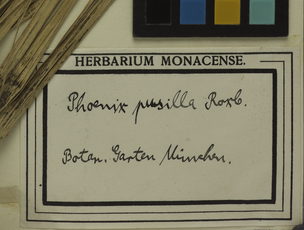 HERBARIUM MONACENSE.
Phoenix pusilla Roxb.
Botan. Garten München.